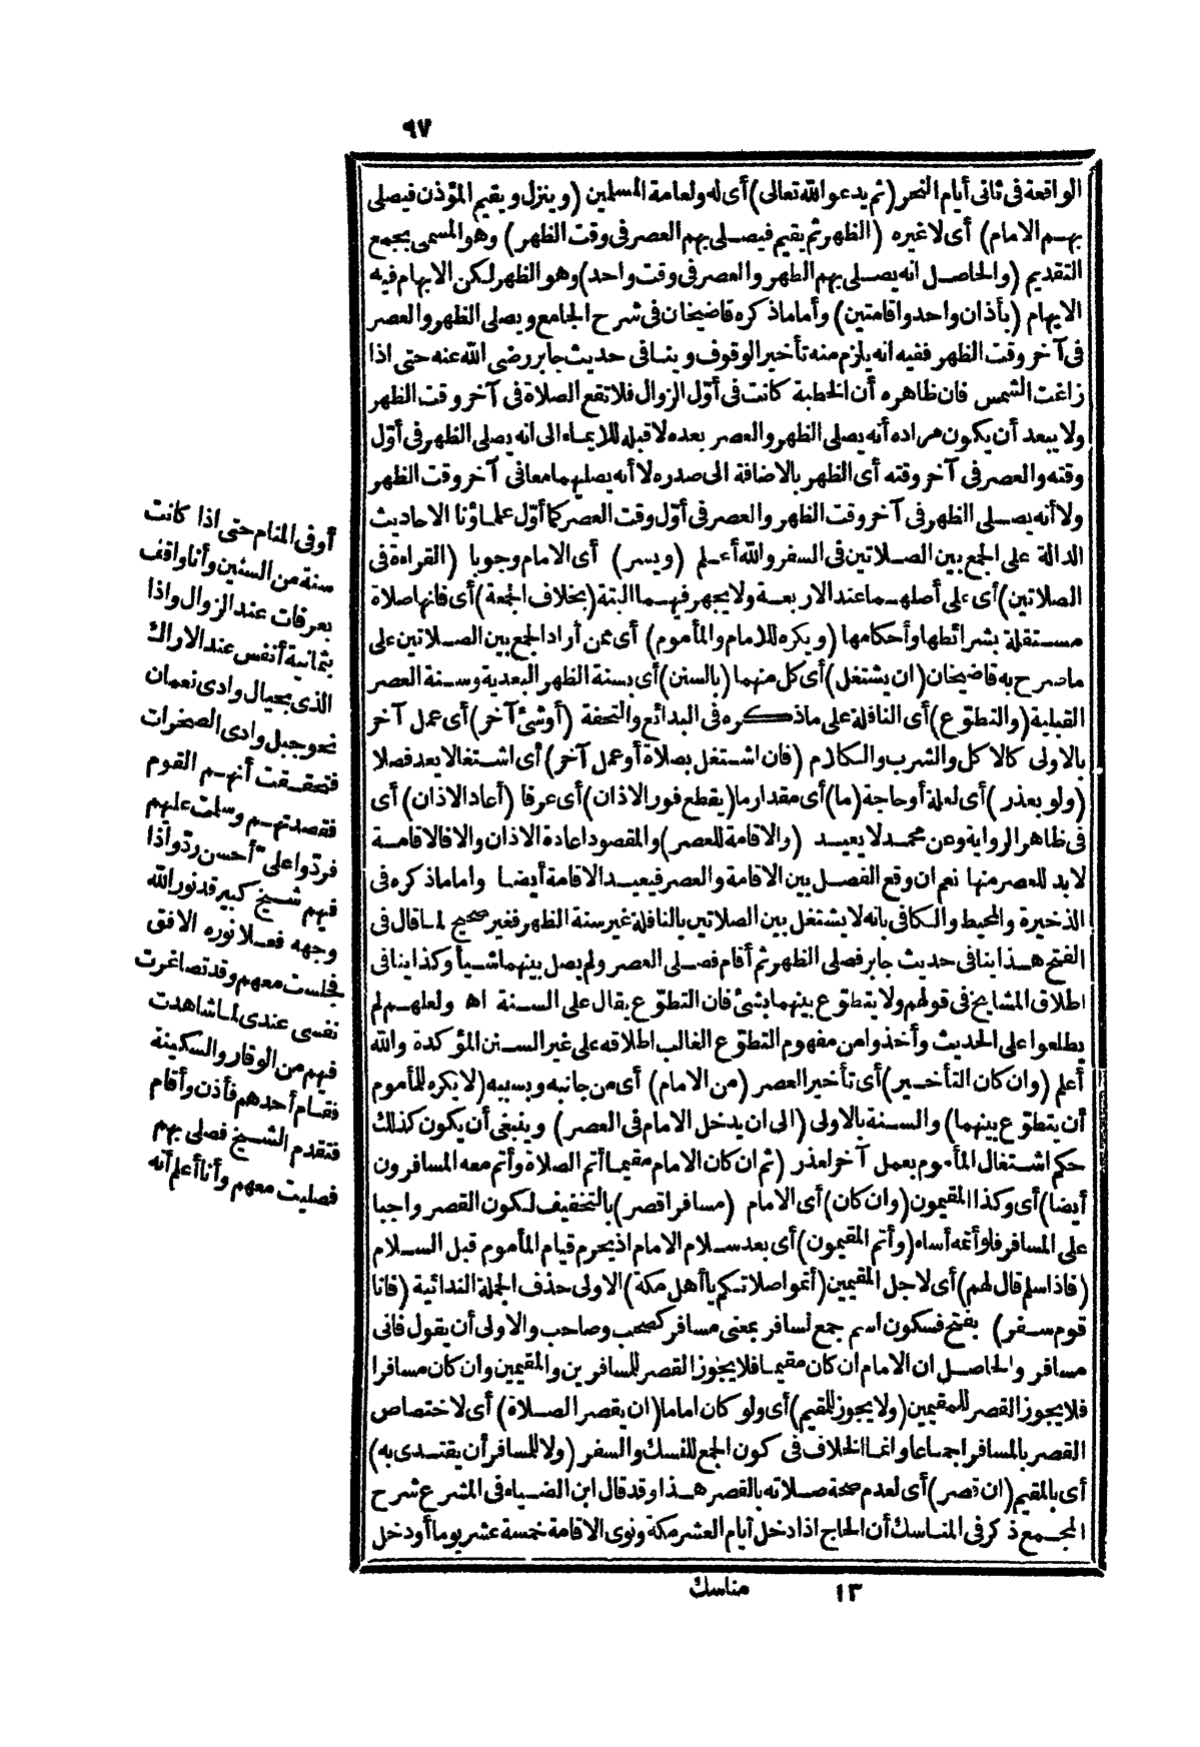 ٩٧
الواقعة فى ثانى أيام النحر (ثم يدعو الله تعالى) أى له ولعامة المسلمين (وينزل ويقيم المؤذن فيصلى
بهم الامام) أى لا غيره (الظهر ثم يقيم فيصلى بهم العصر فى وقت الظهر) وهو المسمى بجمع
التقديم (والحاصل انه يصلى بهم الظهر والعصر فى وقت واحد) وهو الظهر لكن الابهام فيه
الايهام (بأذان واحد واقامتين) وأما ماذكره قاضيخان فى شرح الجامع ويصلى الظهر والعصر
فى آخر وقت الظهر ففيه انه يلزم منه تأخير الوقوف وينافى حديث جابر رضى الله عنه حتى اذا
زاغت الشمس فان ظاهره أن الخطبة كانت فى أوّل الزوال فلا تقع الصلاة فى آخر وقت الظهر
ولا يبعد أن يكون مراده أنه يصلى الظهر والعصر بعده لا قبله للايماء الى انه يصلى الظهر فى أوّل
وقته والعصر فى آخر وقته أى الظهر بالاضافة الى صدره لا أنه يصليهما معا فى آخر وقت الظهر
ولا أنه يصلى الظهر فى آخر وقت الظهر والعصر فى أوّل وقت العصر كما أوّل علماؤنا الاحاديث
الدالة على الجمع بين الصلاتين فى السفر والله أعلم (ويسر) أى الامام وجوبا (القراءة فى
الصلاتين) أى على أصلهما عند الاربعة ولا يجهر فيهما البتة (بخلاف الجمعة) أى فانها صلاة
مستقلة بشرائطها وأحكامها (ويكره للامام والمأموم) أى ممن أراد الجمع بين الصلاتين على
ماصرح به قاضيخان (ان يشتغل) أى كل منهما (بالسنن) أى بسنة الظهر البعدية وسنة العصر
القبلية (والتطوّع) أى النافلة على ماذكره فى البدائع والتحفة (أو شئ آخر) أى عمل آخر
بالاولى كالاكل والشرب والكلام (فان اشتغل بصلاة أو عمل آخر) أى اشتغالا يعد فصلا
(ولو بعذر) أى لعلة أو حاجة (ما) أى مقدار ما (يقطع فور الاذان) أى عرفا (أعاد الاذان) أى
فى ظاهر الرواية وعن محمد لا يعيد (والاقامة للعصر) والمقصود اعادة الاذان والا فالاقامة
لابد للعصر منها نعم ان وقع الفصل بين الاقامة والعصر فيعيد الاقامة أيضا واما ماذكره فى
الذخيرة والمحيط والكافى بانه لا يشتغل بين الصلاتين بالنافلة غير سنة الظهر فغير صحيح لما قال فى
الفتح هذا ينافى حديث جابر فصلى الظهر ثم أقام فصلى العصر ولم يصل بينهما شيأ وكذا ينافى
اطلاق المشايخ فى قولهم ولا يتطوّع بينهما بشئ فان التطوّع يقال على السنة اه ولعلهم لم
يطلعوا على الحديث وأخذوا من مفهوم التطوّع الغالب اطلاقه على غير السنن المؤكدة والله
أعلم (وان كان التأخير) أى تأخير العصر (من الامام) أى من جانبه وبسببه (لا يكره للمأموم
أن يتطوّع بينهما) والسنة بالاولى (الى ان يدخل الامام فى العصر) وينبغى أن يكون كذلك
حكم اشتغال المأموم بعمل آخر لعذر (ثم ان كان الامام مقيما أتم الصلاة وأتم معه المسافرون
أيضا) أى وكذا المقيمون (وان كان) أى الامام (مسافرا قصر) بالتخفيف لكون القصر واجبا
على المسافر فلو أتمه أساء (وأتم المقيمون) أى بعد سلام الامام اذ يحرم قيام المأموم قبل السلام
(فاذا سلم قال لهم) أى لاجل المقيمين (أتموا صلاتكم يا أهل مكة) الاولى حذف الجملة الندائية (فانا
قوم سفر) بفتح فسكون اسم جمع لسافر بمعنى مسافر كصحب وصاحب والاولى أن يقول فانى
مسافر والحاصل ان الامام ان كان مقيما فلا يجوز القصر للمسافرين والمقيمين وان كان مسافرا
فلا يجوز القصر للمقيمين (ولا يجوز للمقيم) أى ولو كان اماما (ان يقصر الصلاة) أى لاختصاص
القصر بالمسافر اجماعا وانما الخلاف فى كون الجمع للنسك والسفر (ولا للمسافر أن يقتدى به)
أى بالمقيم (ان قصر) أى لعدم صحة صلاته بالقصر هذا وقد قال ابن الضياء فى المشرع شرح
المجمع ذكر فى المناسك أن الحاج اذا دخل أيام العشر مكة ونوى الاقامة خمسة عشر يوما أو دخل
أو فى المنام حتى اذا كانت
سنة من السنين وأنا واقف
بعرفات عند الزوال واذا
بثمانية أنفس عند الاراك
الذى بحيال وادى نعمان
نحو جبل وادى الصخرات
فتحققت أنهم القوم
فقصدتهم وسلمت عليهم
فردّوا علىّ أحسن ردّ واذا
فيهم شيخ كبير قد نور الله
وجهه فعلا نوره الافق
فجلست معهم وقد تصاغرت
نفسى عندى لما شاهدت
فيهم من الوقار والسكينة
فقام أحدهم فأذن وأقام
فتقدم الشيخ فصلى بهم
فصليت معهم وأنا أعلم أنه
١٣ مناسك